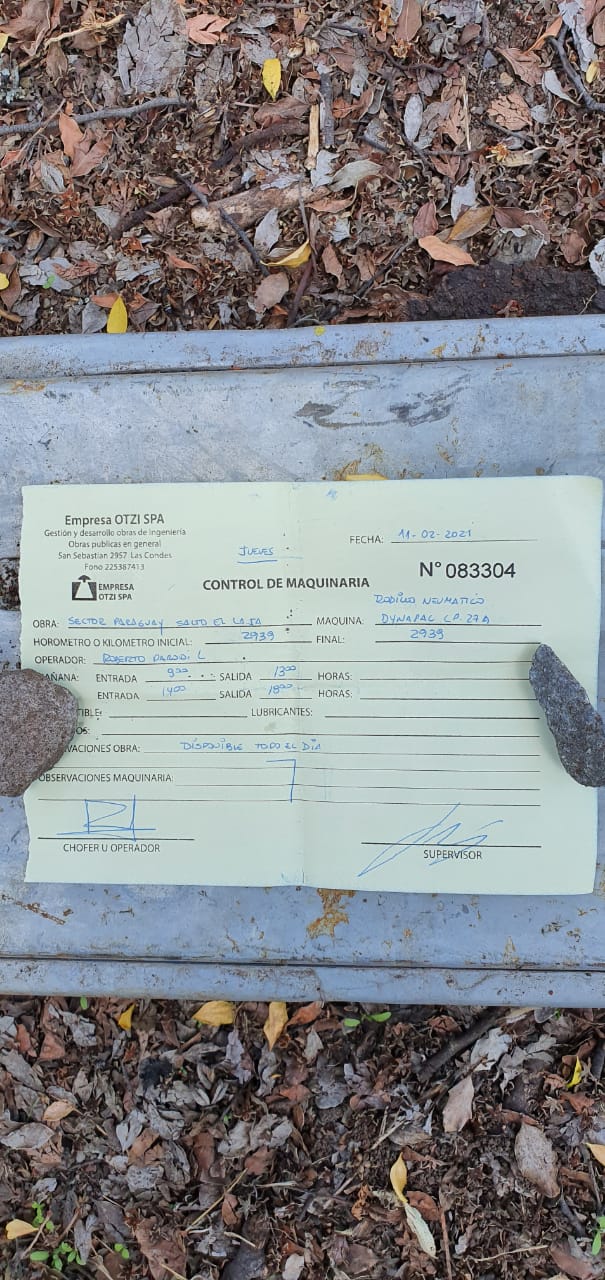 Empresa OTZI SPA
Gestión y desarrollo obras de ingeniería
Obras publicas en general
San Sebastian 2957 Las Condes
Fono 225387413
EMPRESA
OTZI SPA
JUEVES
FECHA: 11-02-2021
CONTROL DE MAQUINARIA
N° 083304
RODILLO NEUMATICO
OBRA: SECTOR PARAGUAY SALTO EL LAJA MAQUINA: DYNAPAC CP-27A
HOROMETRO O KILOMETRO INICIAL: 2939 FINAL: 2939
OPERADOR: ROBERTO PARODI L
AÑANA: ENTRADA 9:00 SALIDA 13:00 HORAS:
ENTRADA 14:00 SALIDA 18:00 HORAS:
TIBLE: LUBRICANTES:
OS:
VACIONES OBRA: DISPONIBLE TODO EL DIA
OBSERVACIONES MAQUINARIA:
CHOFER U OPERADOR SUPERVISOR